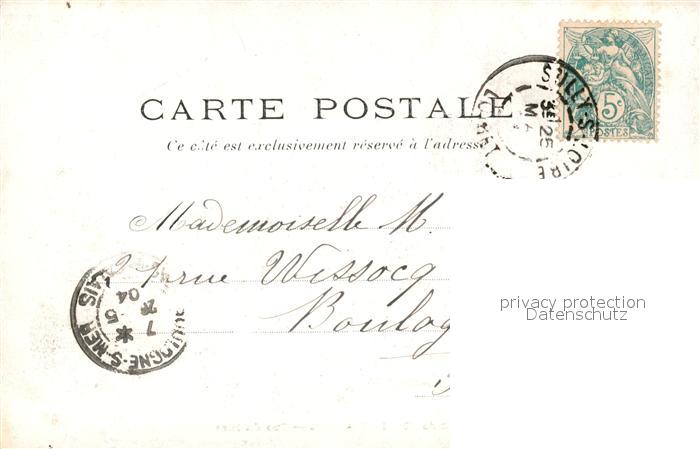 SULLY-S-LOIRE
3E
25
5c
POSTES
CARTE POSTALE
Ce côté est exclusivement réservé à l'adresse
Mademoiselle M.
21 rue Wissocq
Boulog
privacy protection
Datenschutz
BOULOGNE-S-MER
7
5
04